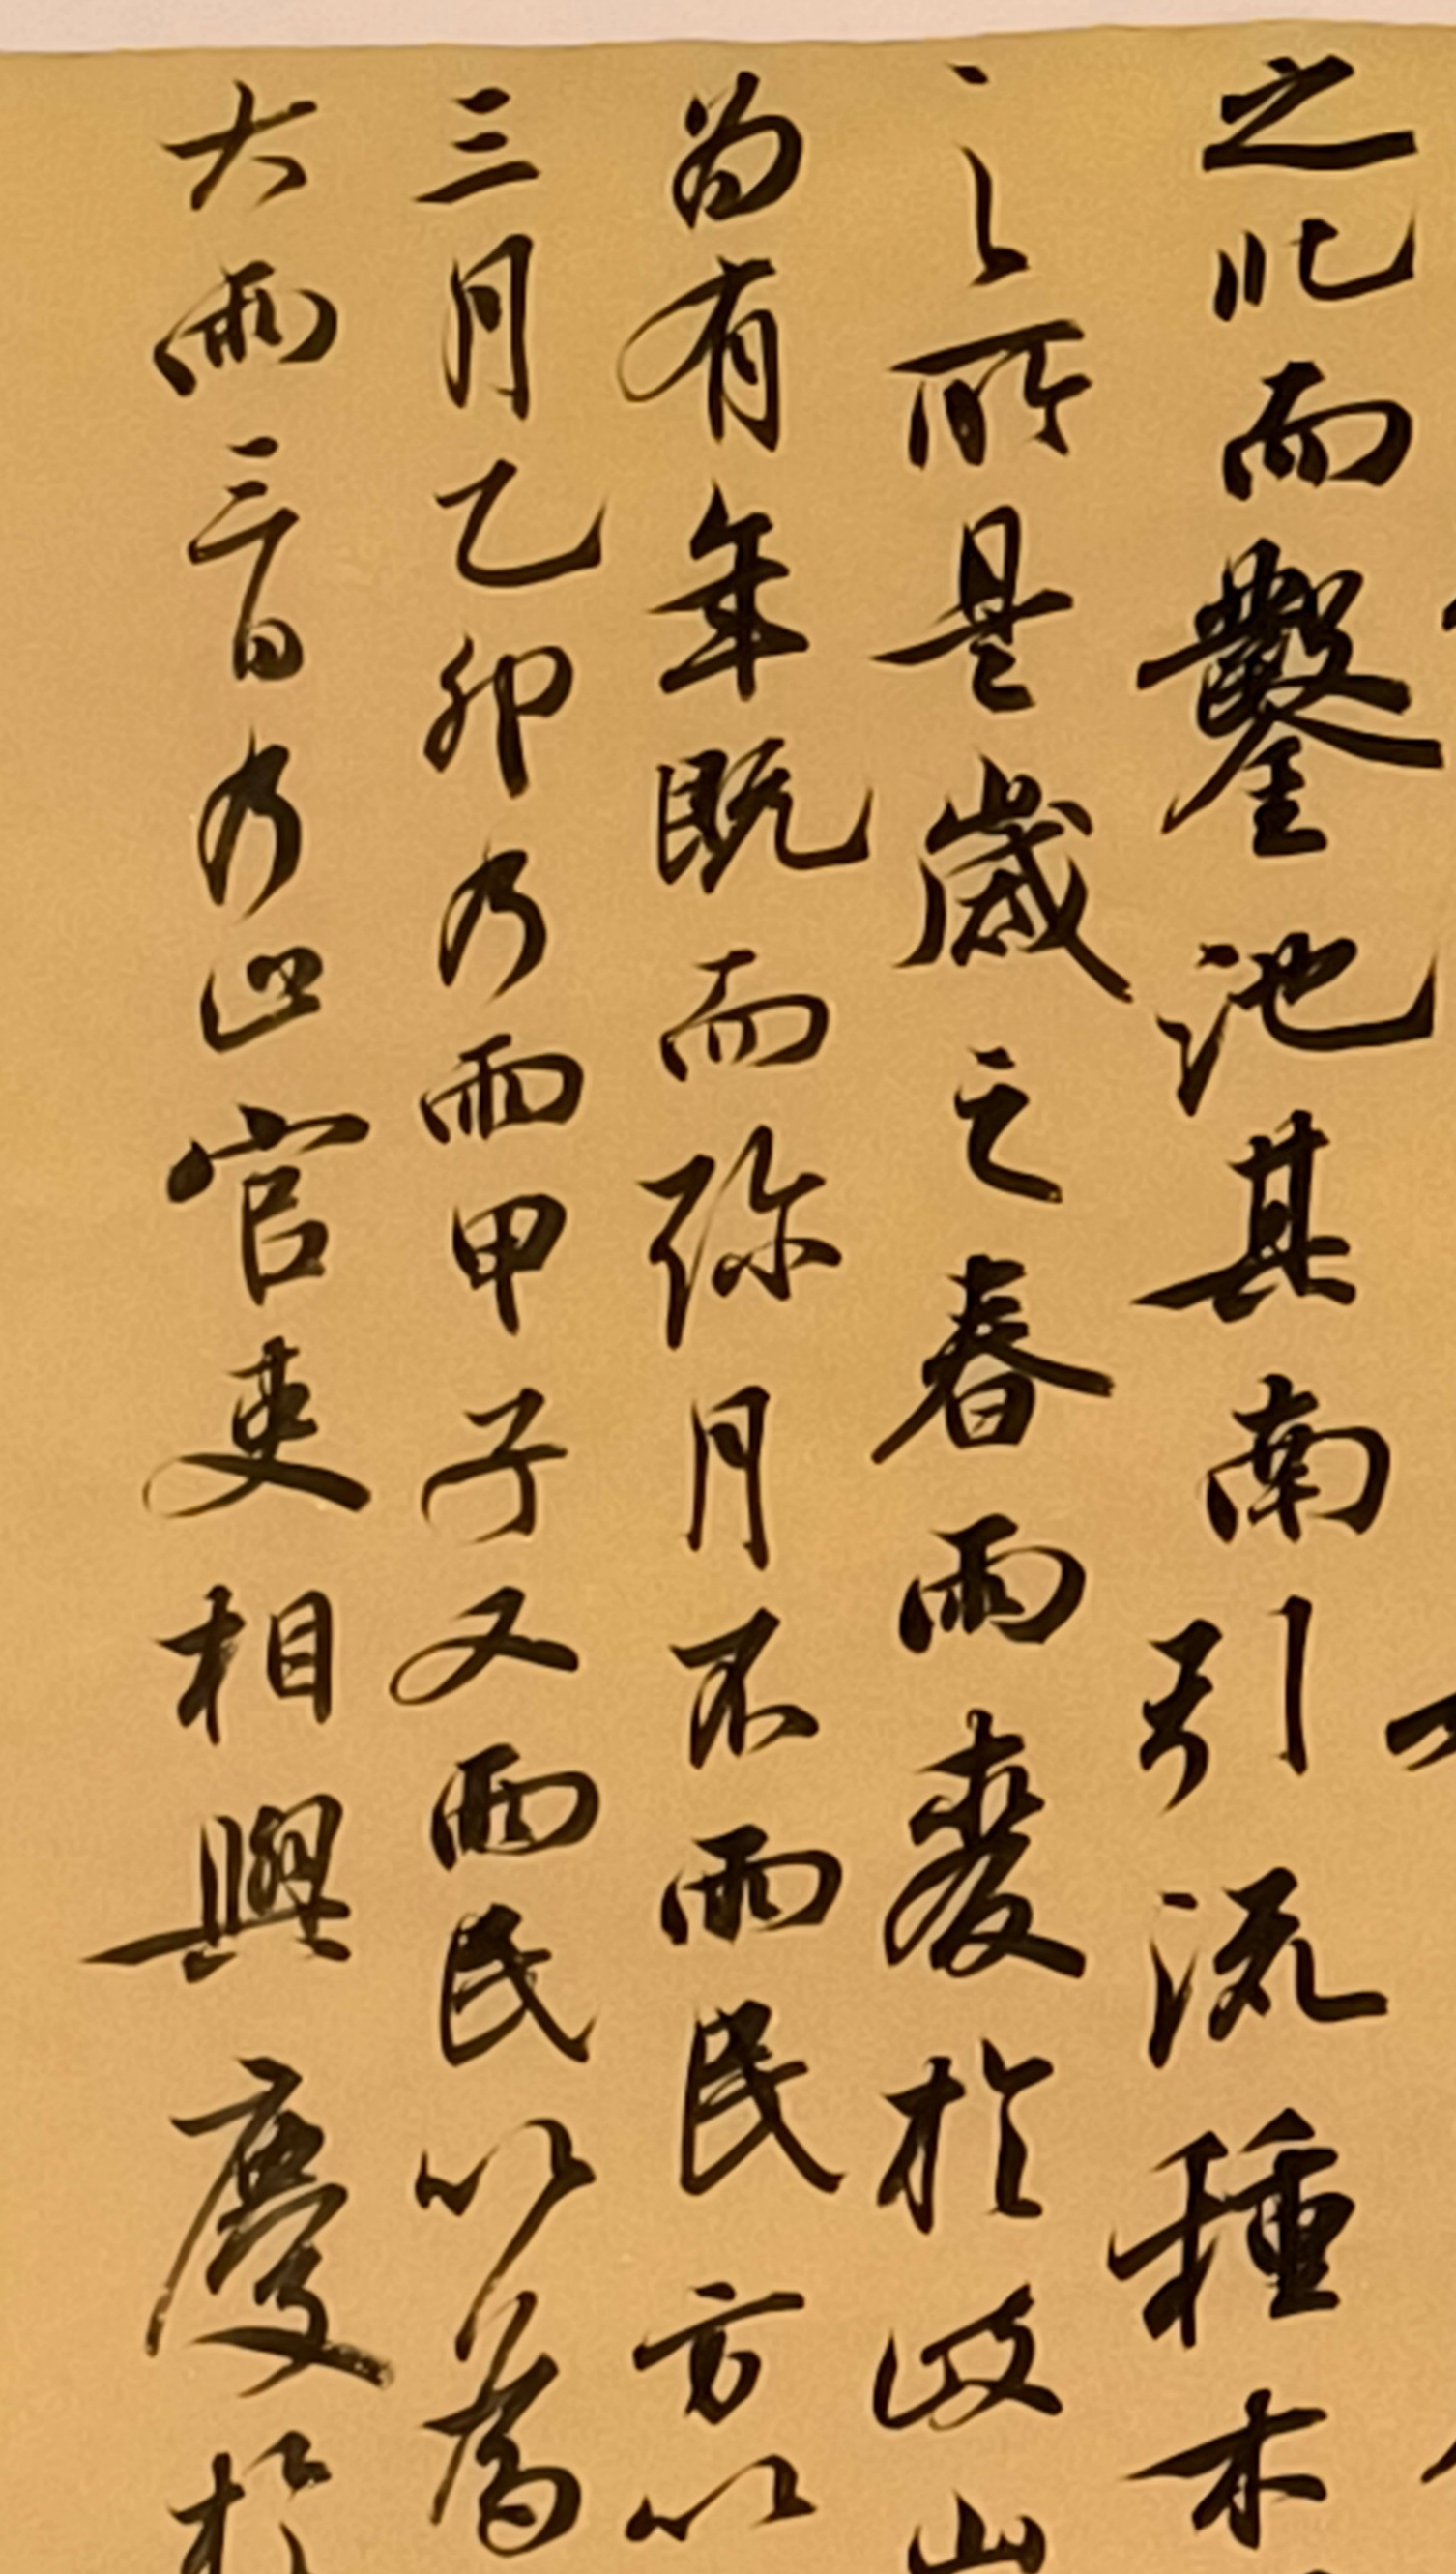 之北而鑿池其南引流種木
之所是歲之春雨麥於岐山
為有年既而弥月不雨民方以
三月乙卯乃雨甲子又雨民以為
大雨三日乃止官吏相與慶於